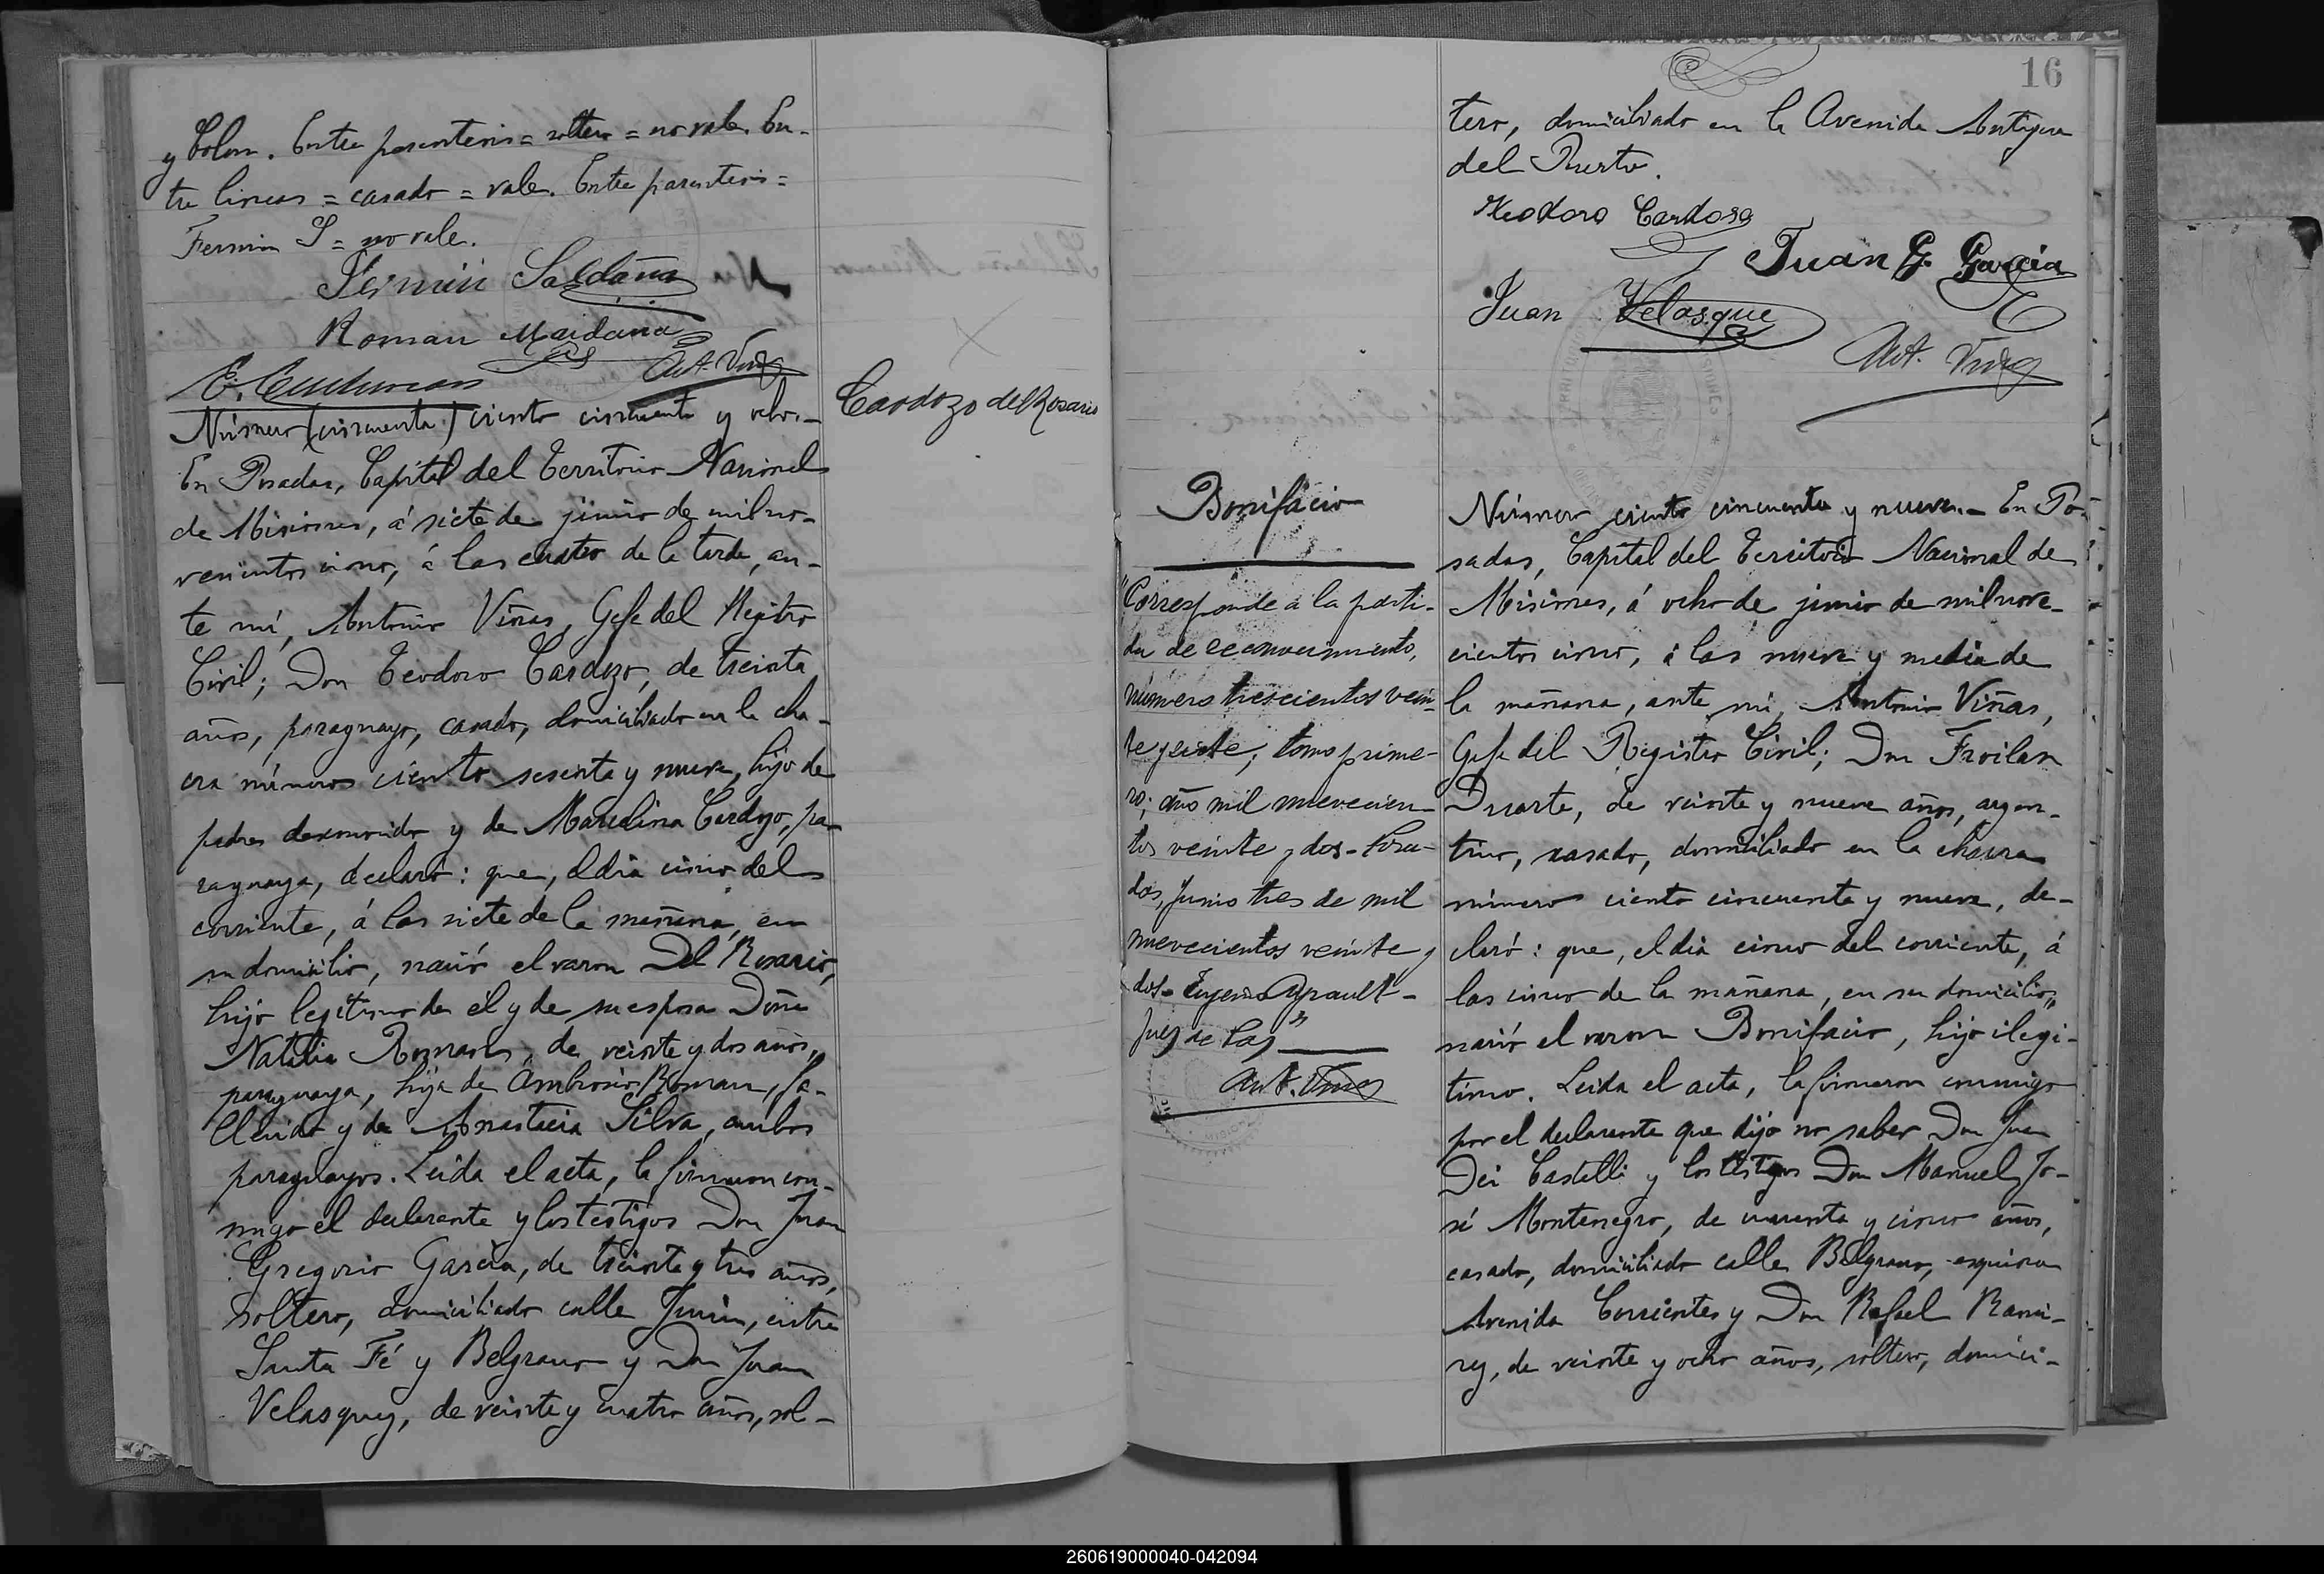 y Colon. Entre parentesis = soltero = no vale. En-
tre lineas = casado = vale. Entre parentesis =
Fermin S = no vale.
Fermin Saldaña
Roman Maidana
Ant. Viñas
Número (cincuenta) ciento cincuenta y ocho.-
En Posadas, Capital del Territorio Nacional
de Misiones, á siete de junio de mil no-
vecientos cinco, á las cuatro de la tarde, an-
te mí, Antonio Viñas, Gefe del Registro
Civil; Don Teodoro Cardozo, de treinta
años, paraguayo, casado, domiciliado en la cha-
cra número ciento sesenta y nueve, hijo de
padre desconocido y de Marcelina Cardozo, pa-
raguaya, declaró: que, el dia cinco del
corriente, á las siete de la mañana, en
su domicilio, nació el varon Del Rosario,
hijo legítimo de él y de su esposa Doña
Natalia Roman, de veinte y dos años,
paraguaya, hija de Ambrosio Roman, fa-
llecido y de Anastacia Silva, ambos
paraguayos. Leida el acta, la firmaron con-
migo el declarante y los testigos Don Juan
Gregorio García, de treinta y tres años,
soltero, domiciliado calle Junin, entre
Santa Fé y Belgrano y Don Juan
Velasquez, de veinte y cuatro años, sol-
Cardozo del Rosario
16
tero, domiciliado en la Avenida Antigua
del Puerto.
Teodoro Cardoso
Juan G. García
Juan Velasque
Ant. Viñas
Bonifacio
"Corresponde a la parti-
da de reconocimiento,
número trescientos vein-
te y siete; tomo prime-
ro; año mil novecien-
tos veinte y dos - Posa-
das, Junio tres de mil
novecientos veinte y
dos - Eugenio Ayrault -
Juez de Paz"
Ant. Viñas
Número ciento cincuenta y nueve.- En Po-
sadas, Capital del Territorio Nacional de
Misiones, á ocho de junio de mil nove-
cientos cinco, á las nueve y media de
la mañana, ante mí, Antonio Viñas,
Gefe del Registro Civil; Don Froilan
Duarte, de veinte y nueve años, argen-
tino, casado, domiciliado en la chacra
número ciento cincuenta y nueve, de-
claró: que, el dia cinco del corriente, á
las cinco de la mañana, en su domicilio,
nació el varon Bonifacio, hijo ilegi-
timo. Leida el acta, la firmaron conmigo
por el declarante que dijo no saber Don Juan
Dei Castelli y los testigos Don Manuel Jo-
sé Montenegro, de cuarenta y cinco años,
casado, domiciliado calle Belgrano, esquina
Avenida Corrientes y Don Rafael Rami-
rez, de veinte y ocho años, soltero, domici-
260619000040-042094